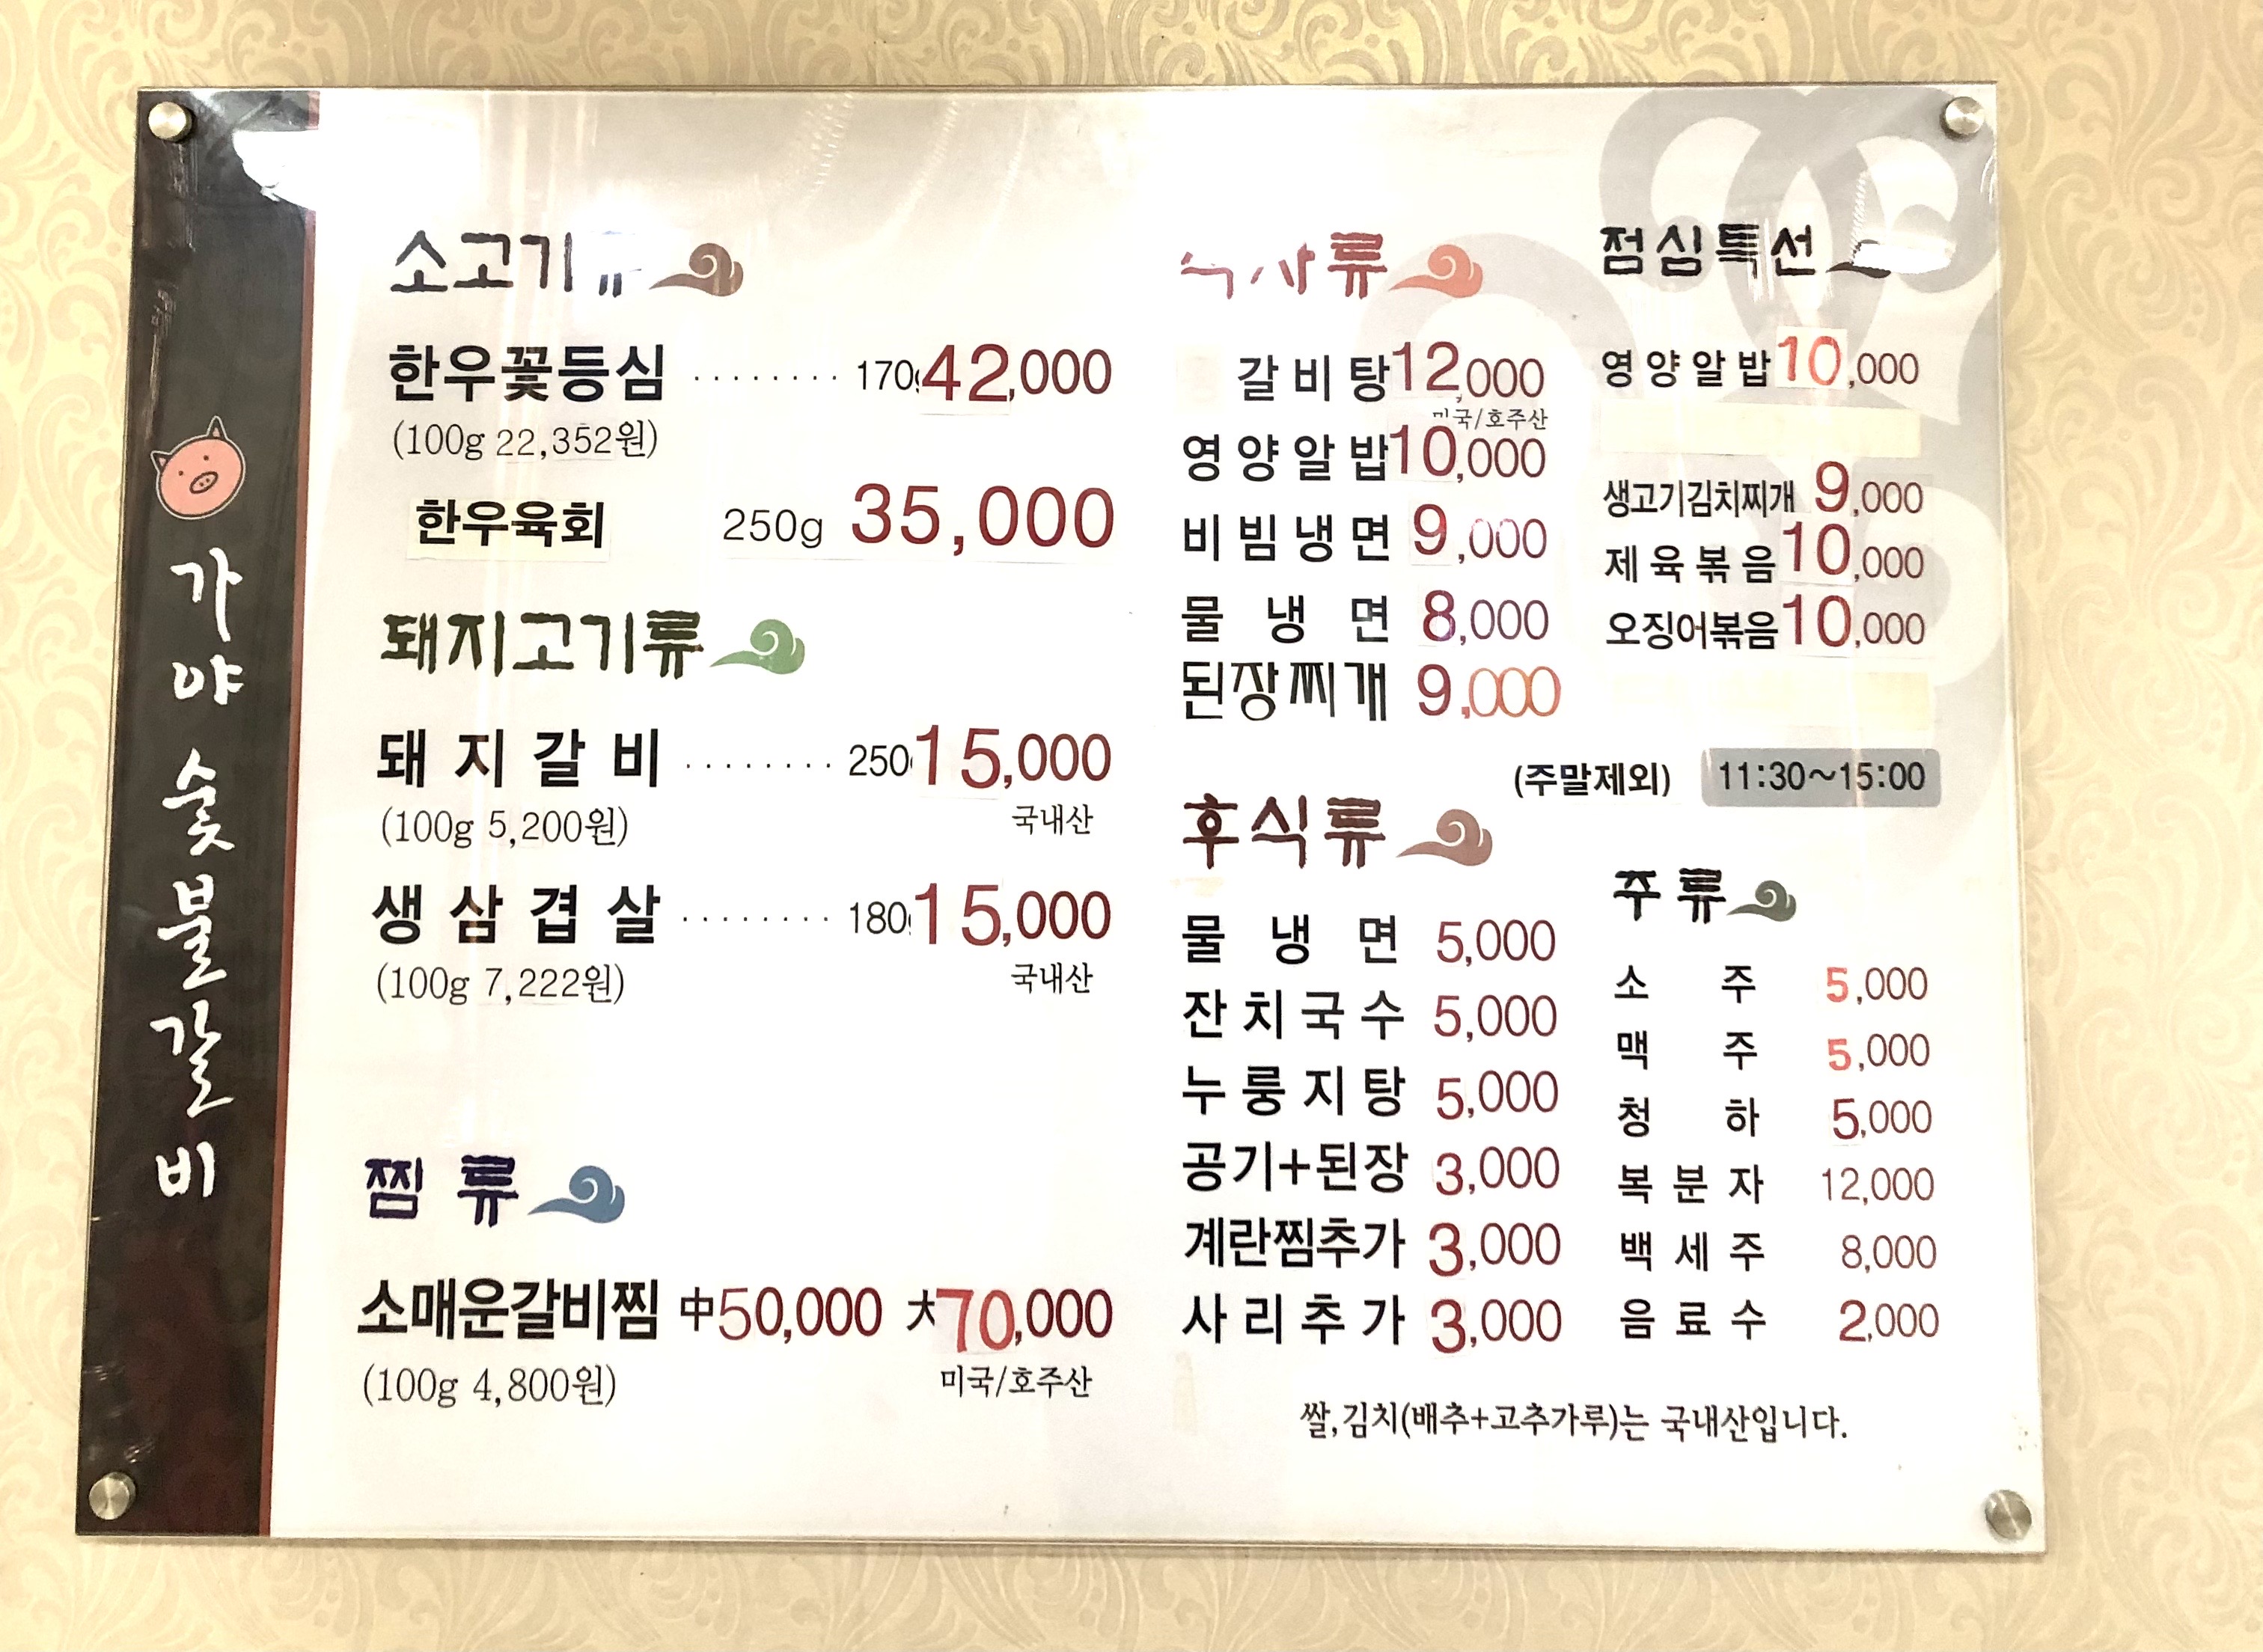 가야 숯불갈비
소고기류
한우꽃등심 ········ 170g 42,000
(100g 22,352원)
한우육회 250g 35,000
돼지고기류
돼지갈비 ········ 250 15,000
(100g 5,200원)
국내산
생삼겹살 ········ 180g 15,000
(100g 7,222원)
국내산
찜류
소매운갈비찜 中50,000 大70,000
(100g 4,800원)
미국/호주산
식사류
갈비탕 12,000
미국/호주산
영양알밥 10,000
비빔냉면 9,000
물냉면 8,000
된장찌개 9,000
점심특선
영양알밥 10,000
생고기김치찌개 9,000
제육볶음 10,000
오징어볶음 10,000
(주말제외) 11:30~15:00
후식류
물냉면 5,000
잔치국수 5,000
누룽지탕 5,000
공기+된장 3,000
계란찜추가 3,000
사리추가 3,000
주류
소주 5,000
맥주 5,000
청하 5,000
복분자 12,000
백세주 8,000
음료수 2,000
쌀,김치(배추+고추가루)는 국내산입니다.